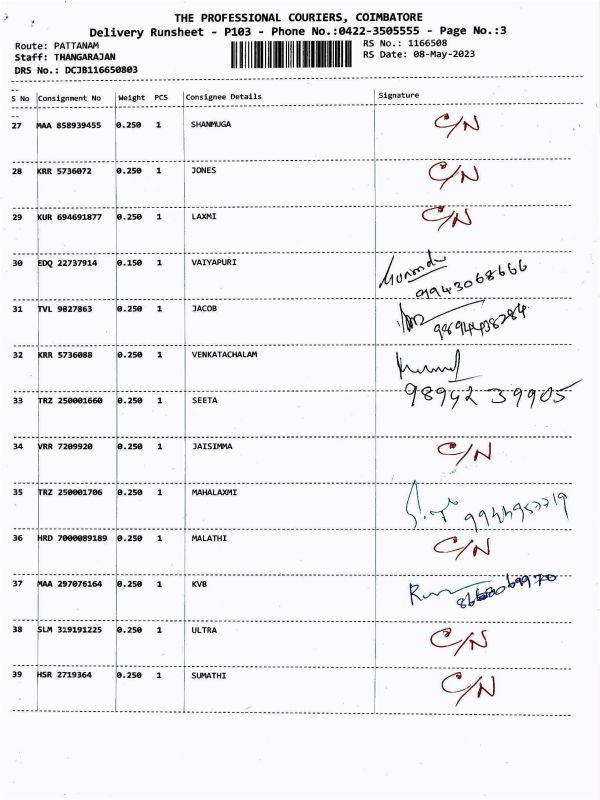 THE PROFESSIONAL COURIERS, COIMBATORE
Delivery Runsheet - P103 - Phone No.:0422-3505555 - Page No.:3
Route: PATTANAM RS No.: 1166508
Staff: THANGARAJAN RS Date: 08-May-2023
DRS No.: DCJB116650803
S No Consignment No Weight PCS Consignee Details Signature
27 MAA 858939455 0.250 1 SHANMUGA C/N
28 KRR 5736072 0.250 1 JONES C/N
29 KUR 694691877 0.250 1 LAXMI C/N
30 EDQ 22737914 0.150 1 VAIYAPURI
9943068666
31 TVL 9827863 0.250 1 JACOB
32 KRR 5736088 0.250 1 VENKATACHALAM
33 TRZ 250001660 0.250 1 SEETA 98942 39905
34 VRR 7209920 0.250 1 JAISIMMA C/N
35 TRZ 250001706 0.250 1 MAHALAXMI
36 HRD 7000089189 0.250 1 MALATHI C/N
37 MAA 297076164 0.250 1 KVB
38 SLM 319191225 0.250 1 ULTRA C/N
39 HSR 2719364 0.250 1 SUMATHI C/N